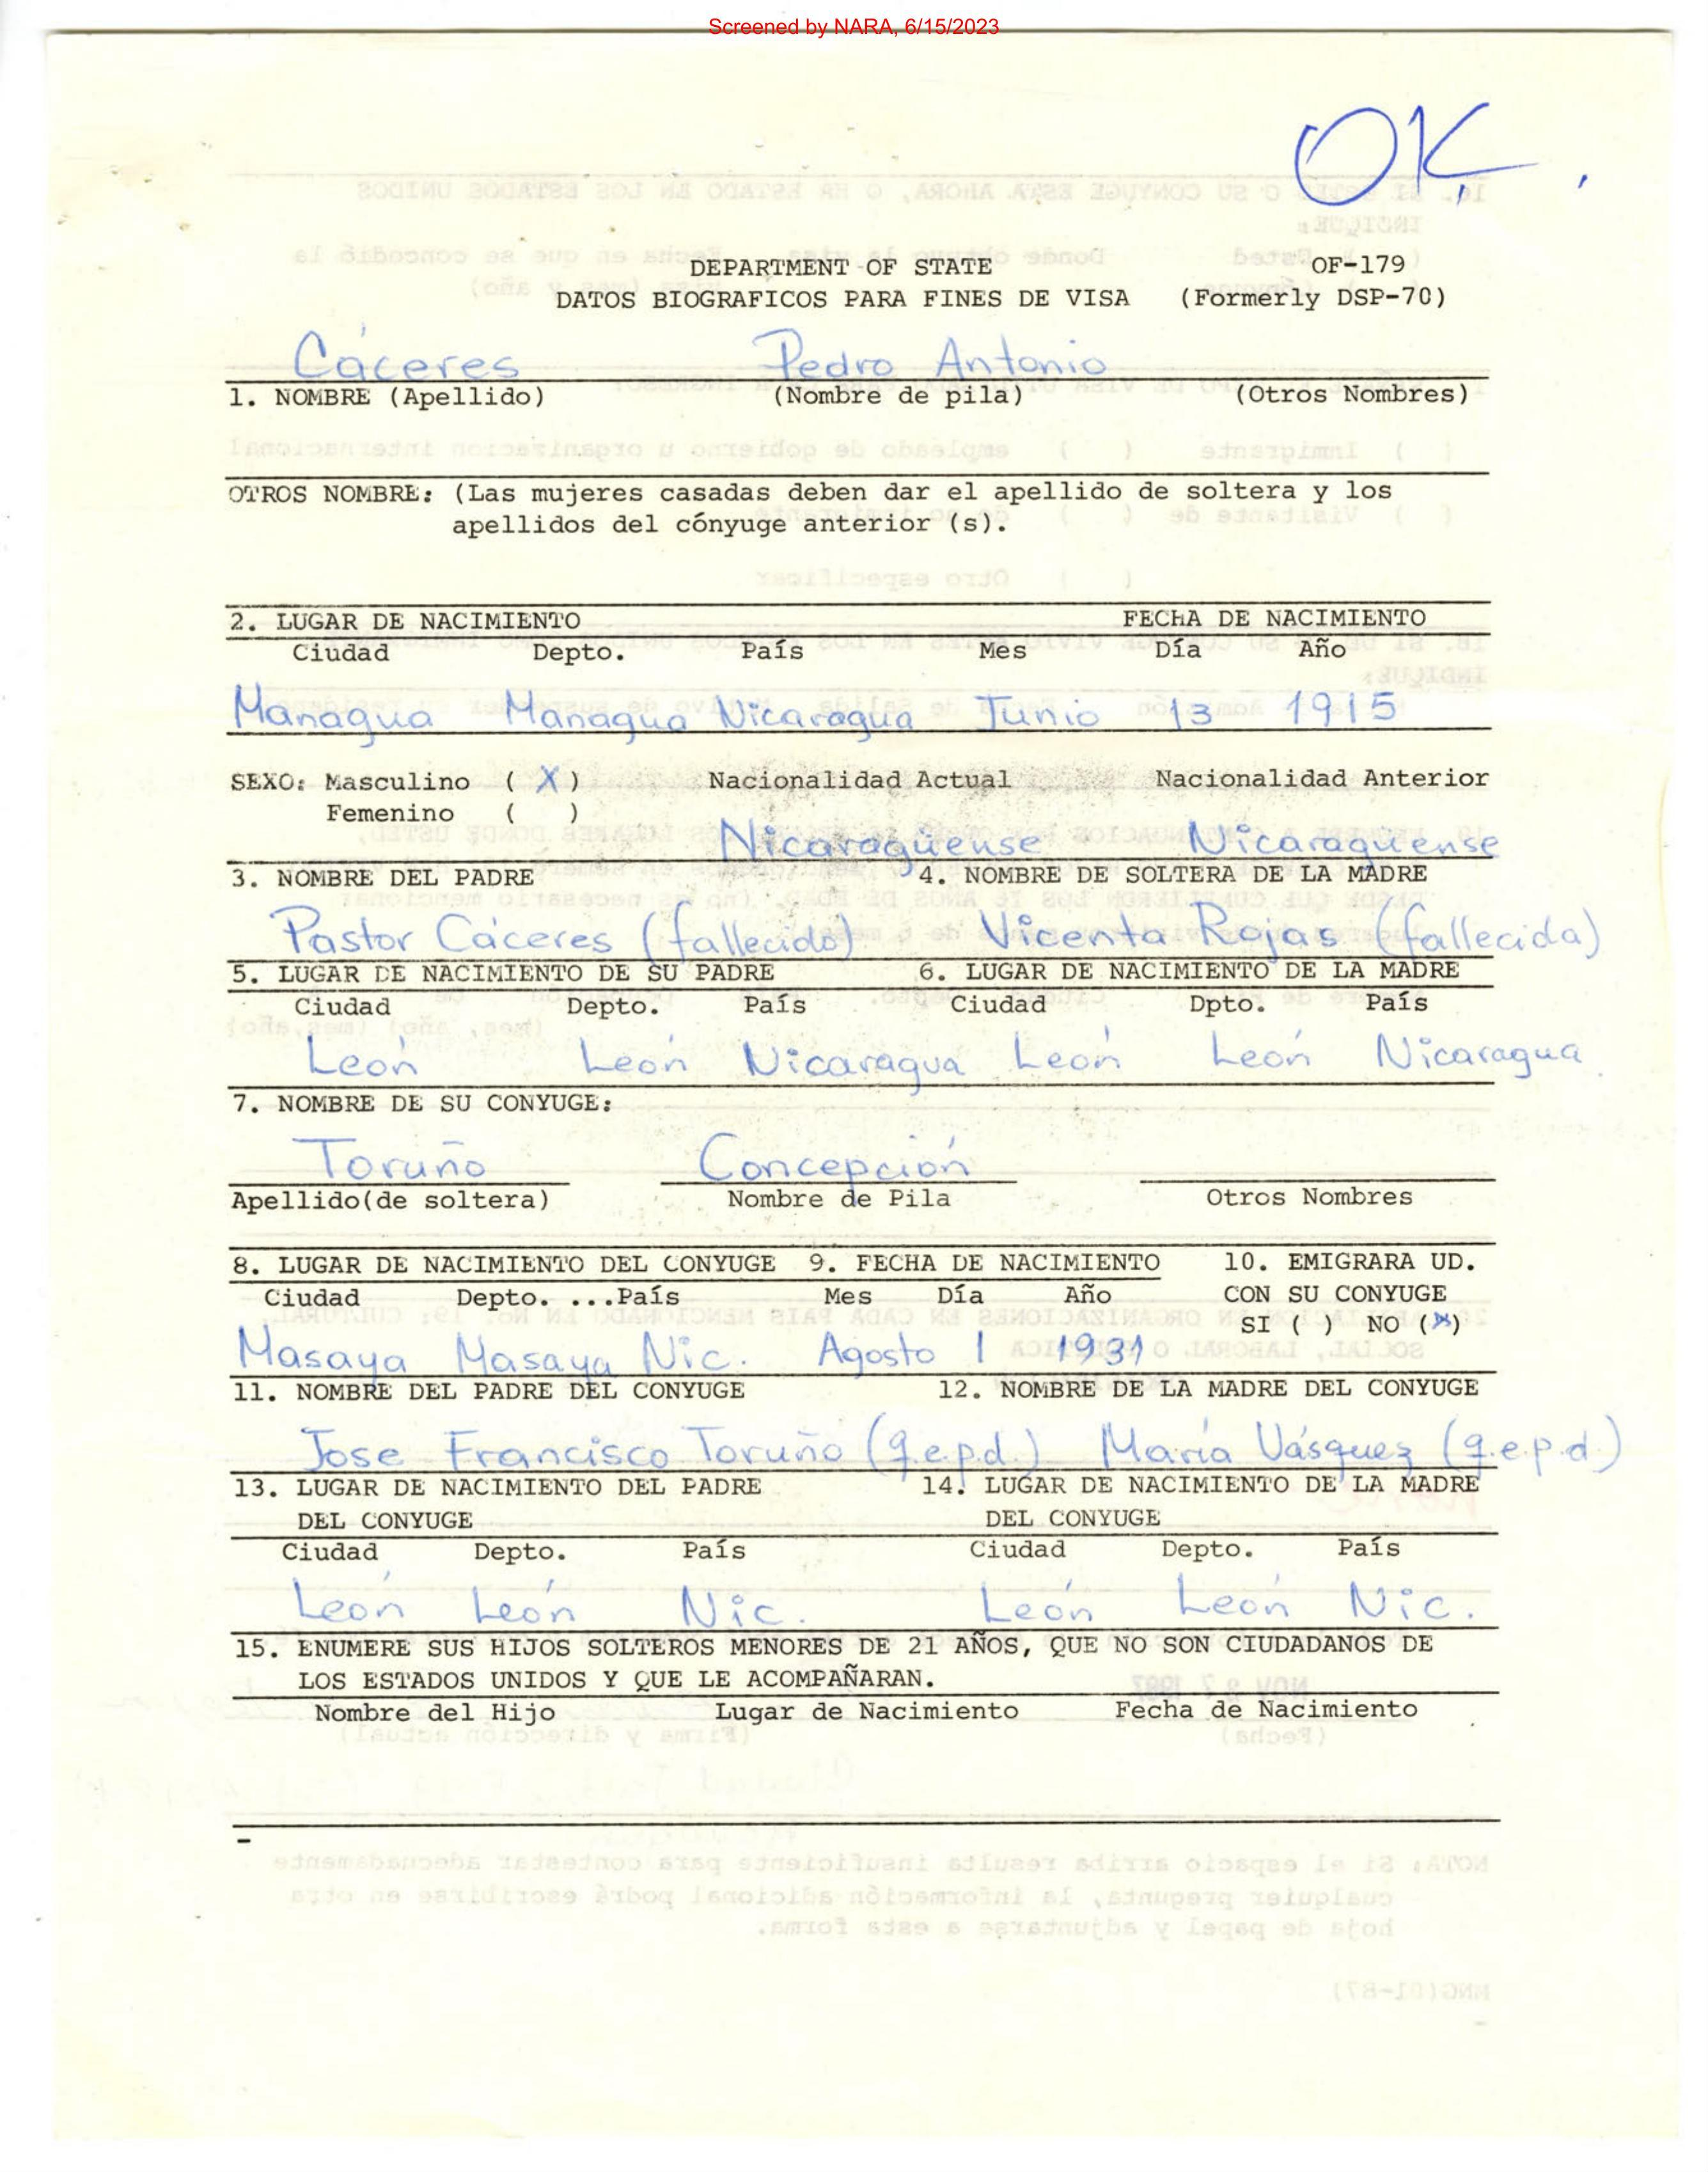 Screened by NARA, 6/15/2023
OK.
DEPARTMENT OF STATE OF-179
DATOS BIOGRAFICOS PARA FINES DE VISA (Formerly DSP-70)
Cáceres Pedro Antonio
1. NOMBRE (Apellido) (Nombre de pila) (Otros Nombres)
OTROS NOMBRE: (Las mujeres casadas deben dar el apellido de soltera y los
apellidos del cónyuge anterior (s).
2. LUGAR DE NACIMIENTO FECHA DE NACIMIENTO
Ciudad Depto. País Mes Día Año
Managua Managua Nicaragua Junio 13 1915
SEXO: Masculino ( X ) Nacionalidad Actual Nacionalidad Anterior
Femenino ( )
Nicaragüense Nicaraguense
3. NOMBRE DEL PADRE 4. NOMBRE DE SOLTERA DE LA MADRE
Pastor Cáceres (fallecido) Vicenta Rojas (fallecida)
5. LUGAR DE NACIMIENTO DE SU PADRE 6. LUGAR DE NACIMIENTO DE LA MADRE
Ciudad Depto. País Ciudad Dpto. País
León León Nicaragua León León Nicaragua
7. NOMBRE DE SU CONYUGE:
Toruño Concepción
Apellido(de soltera) Nombre de Pila Otros Nombres
8. LUGAR DE NACIMIENTO DEL CONYUGE 9. FECHA DE NACIMIENTO 10. EMIGRARA UD.
Ciudad Depto. ...País Mes Día Año CON SU CONYUGE
SI ( ) NO (X)
Masaya Masaya Nic. Agosto 1 1931
11. NOMBRE DEL PADRE DEL CONYUGE 12. NOMBRE DE LA MADRE DEL CONYUGE
Jose Francisco Toruño (q.e.p.d.) María Vásquez (q.e.p.d.)
13. LUGAR DE NACIMIENTO DEL PADRE 14. LUGAR DE NACIMIENTO DE LA MADRE
DEL CONYUGE DEL CONYUGE
Ciudad Depto. País Ciudad Depto. País
León León Nic. León León Nic.
15. ENUMERE SUS HIJOS SOLTEROS MENORES DE 21 AÑOS, QUE NO SON CIUDADANOS DE
LOS ESTADOS UNIDOS Y QUE LE ACOMPAÑARAN.
Nombre del Hijo Lugar de Nacimiento Fecha de Nacimiento